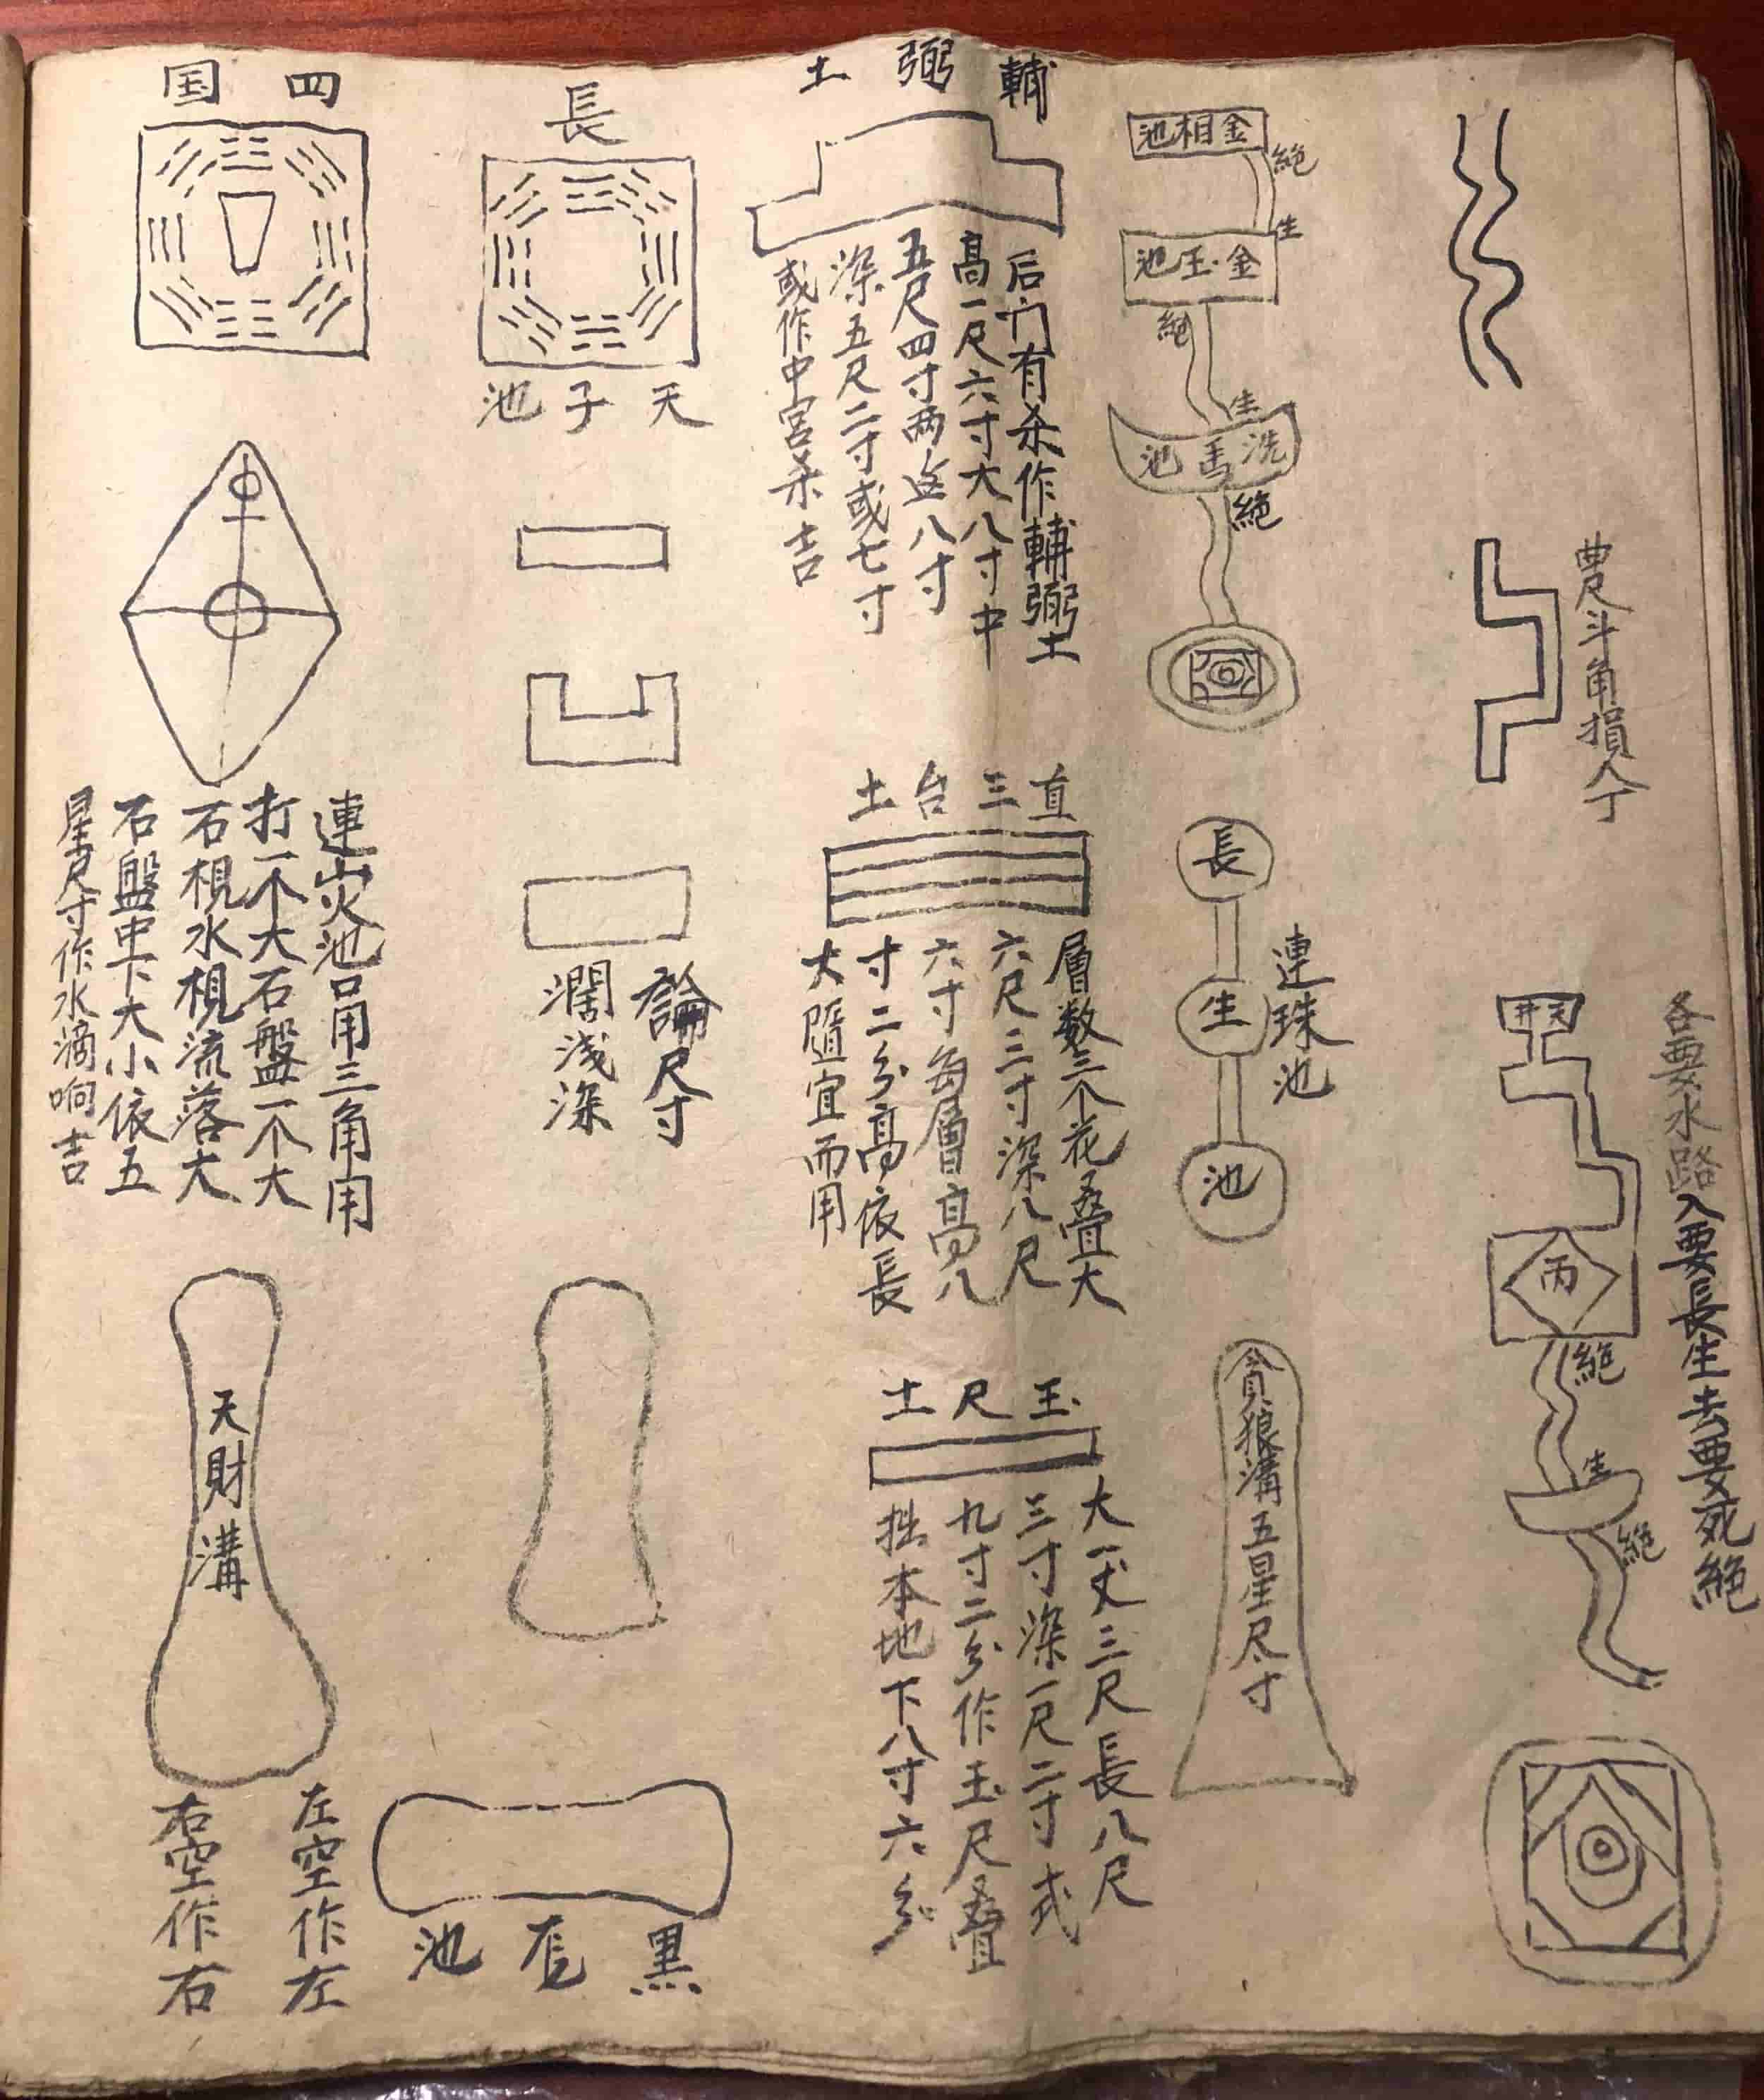 曲尺斗角損人丁
各要水路入要長生去要死絕
丙
絕
生
絕
金相池
絕
生
金玉池
絕
生
洗馬池
絕
長
生
池
連珠池
貪狼溝五星尺寸
輔弼土
后门有杀作輔弼土
高一尺六寸大八寸中
五尺四寸两边八寸
深五尺二寸或七寸
或作中宫杀吉
直三台土
層数三个花叠大
六尺三寸深八尺
六寸每層高八
寸二分高依長
大隨宜而用
玉尺土
大一丈三尺長八尺
三寸深一尺二寸式
九寸二分作玉尺叠
拙本地下八寸六分
長
天子池
論尺寸
濶浅深
黒 池
四国
連山火池口用三角用
打一个大石盤一个大
石梘水梘流落大
石盤中下大小依五
星尺寸作水滴响吉
天財溝
左空作左
右空作右